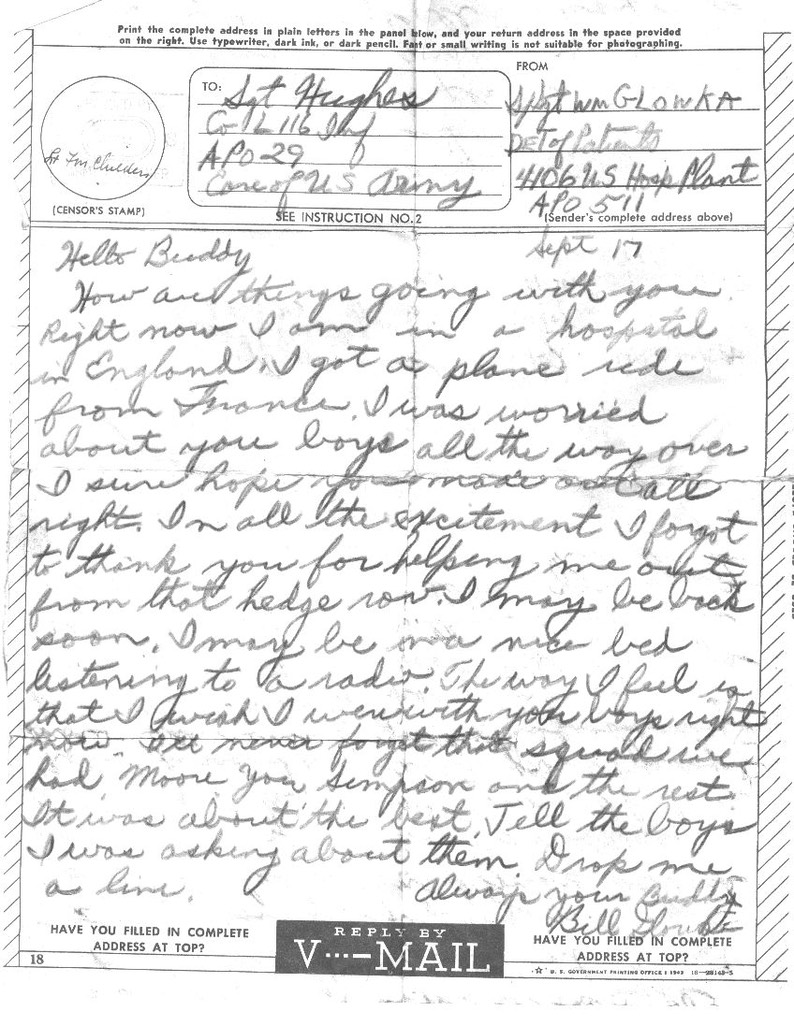 Print the complete address in plain letters in the panel below, and your return address in the space provided
on the right. Use typewriter, dark ink, or dark pencil. Faint or small writing is not suitable for photographing.
FROM
TO:
Sgt Hughes
Co L 116 Inf
APO 29
Care of US Army
S/Sgt Wm GLOWKA
DET of Patients
4106 US Hosp Plant
APO 511
(Sender's complete address above)
Lt Childers
(CENSOR'S STAMP)
SEE INSTRUCTION NO. 2
Sept 17
Hello Buddy
How are things going with you.
Right now I am in a hospital
in England. I got a plane ride
from France. I was worried
about you boys all the way over
I sure hope you made out all
right. In all the excitement I forgot
to thank you for helping me out
from that hedge row. I may be back
soon. I may be in a nice bed
listening to a radio. The way I feel is
that I wish I were with you boys right
now. I'll never forget that squad we
had Moore You Simpson and the rest.
It was about the best. Tell the boys
I was asking about them. Drop me
a line.
Always your Buddy
Bill Glowka
HAVE YOU FILLED IN COMPLETE
ADDRESS AT TOP?
REPLY BY
V···—MAIL
HAVE YOU FILLED IN COMPLETE
ADDRESS AT TOP?
18
☆ U. S. GOVERNMENT PRINTING OFFICE : 1943 16—28143-5